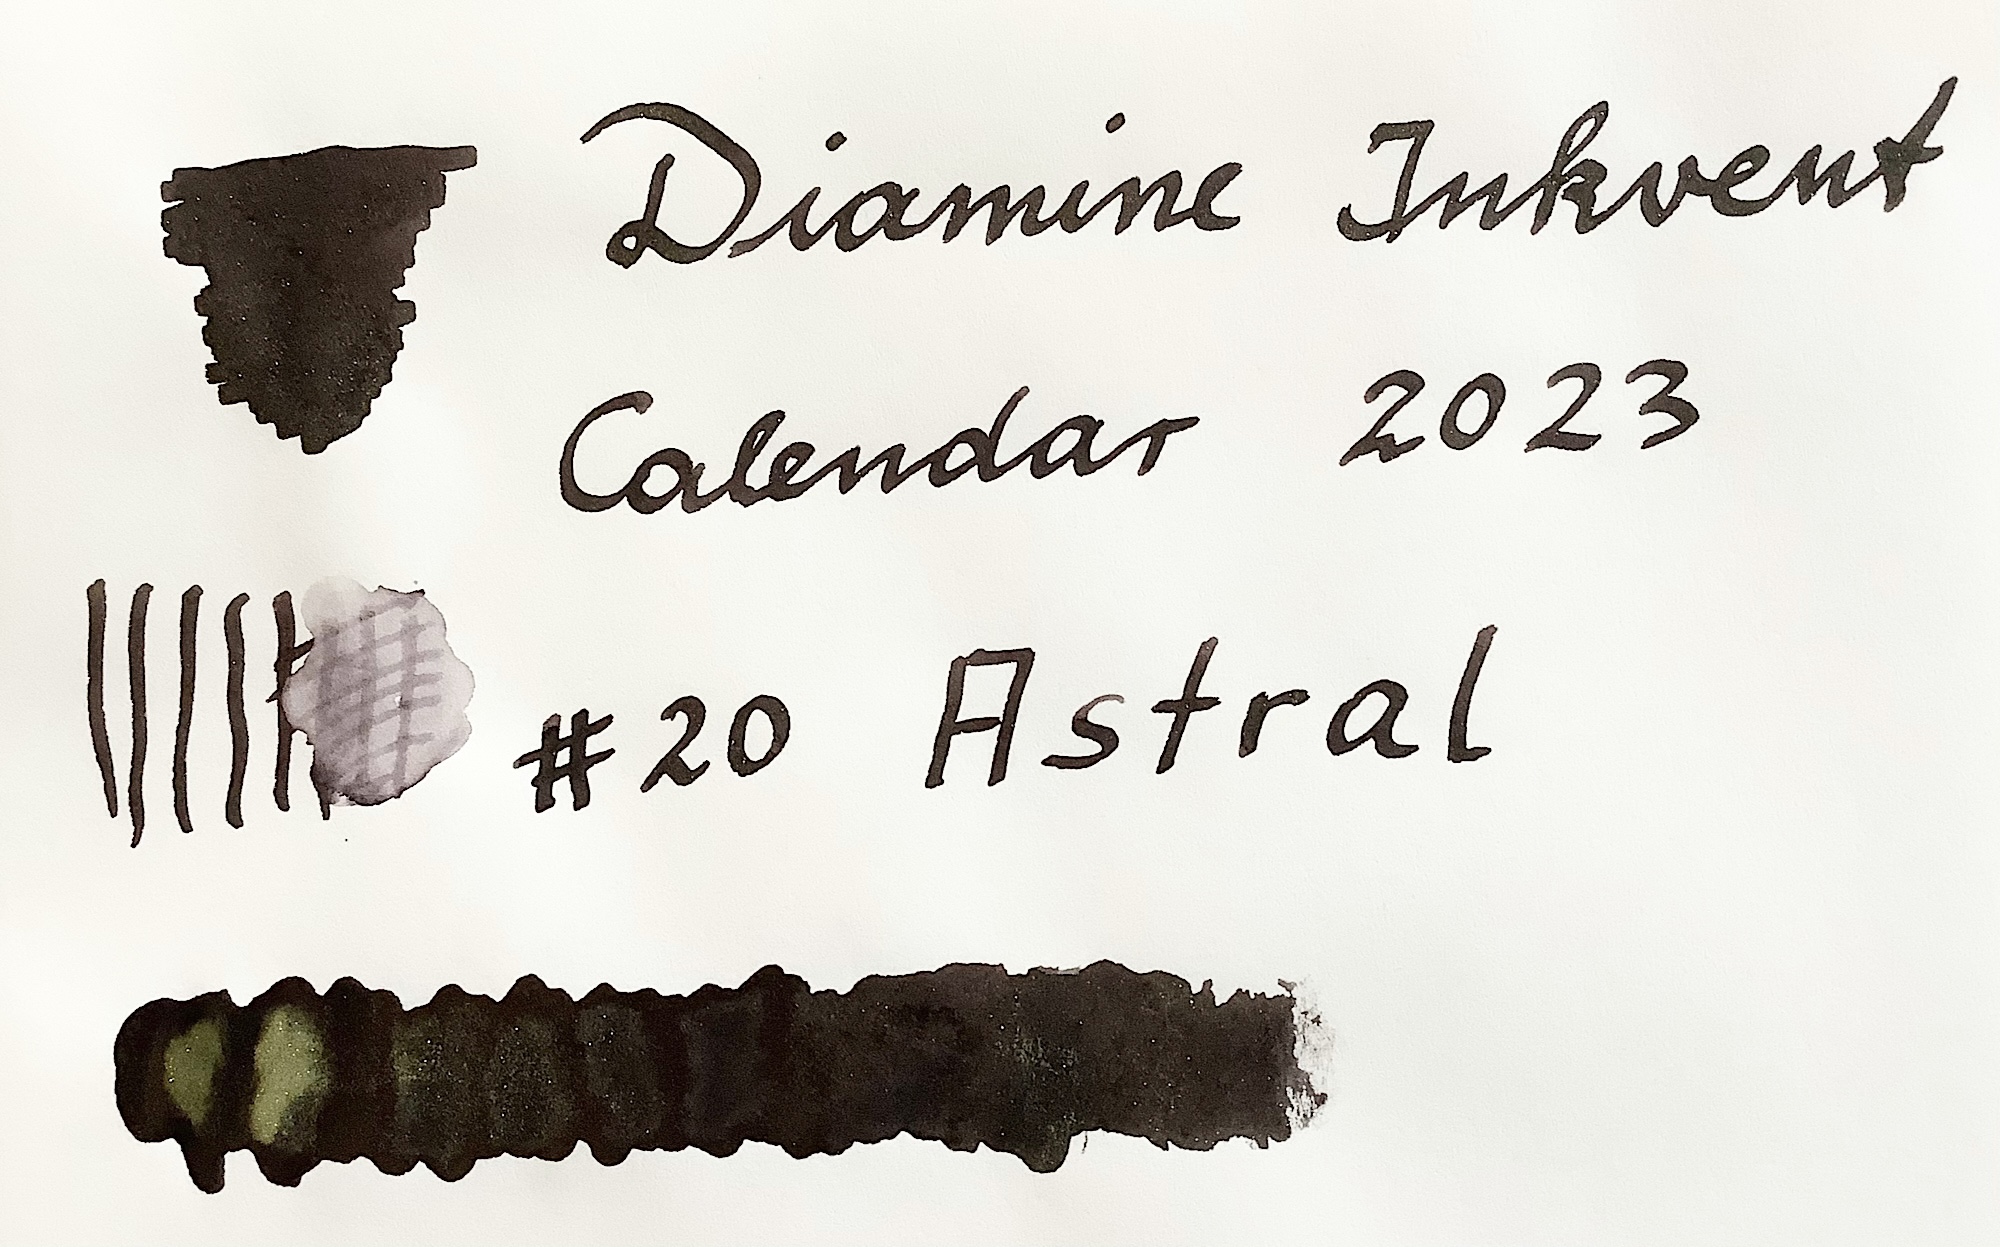 Diamine Inkvent
Calendar 2023
#20 Astral